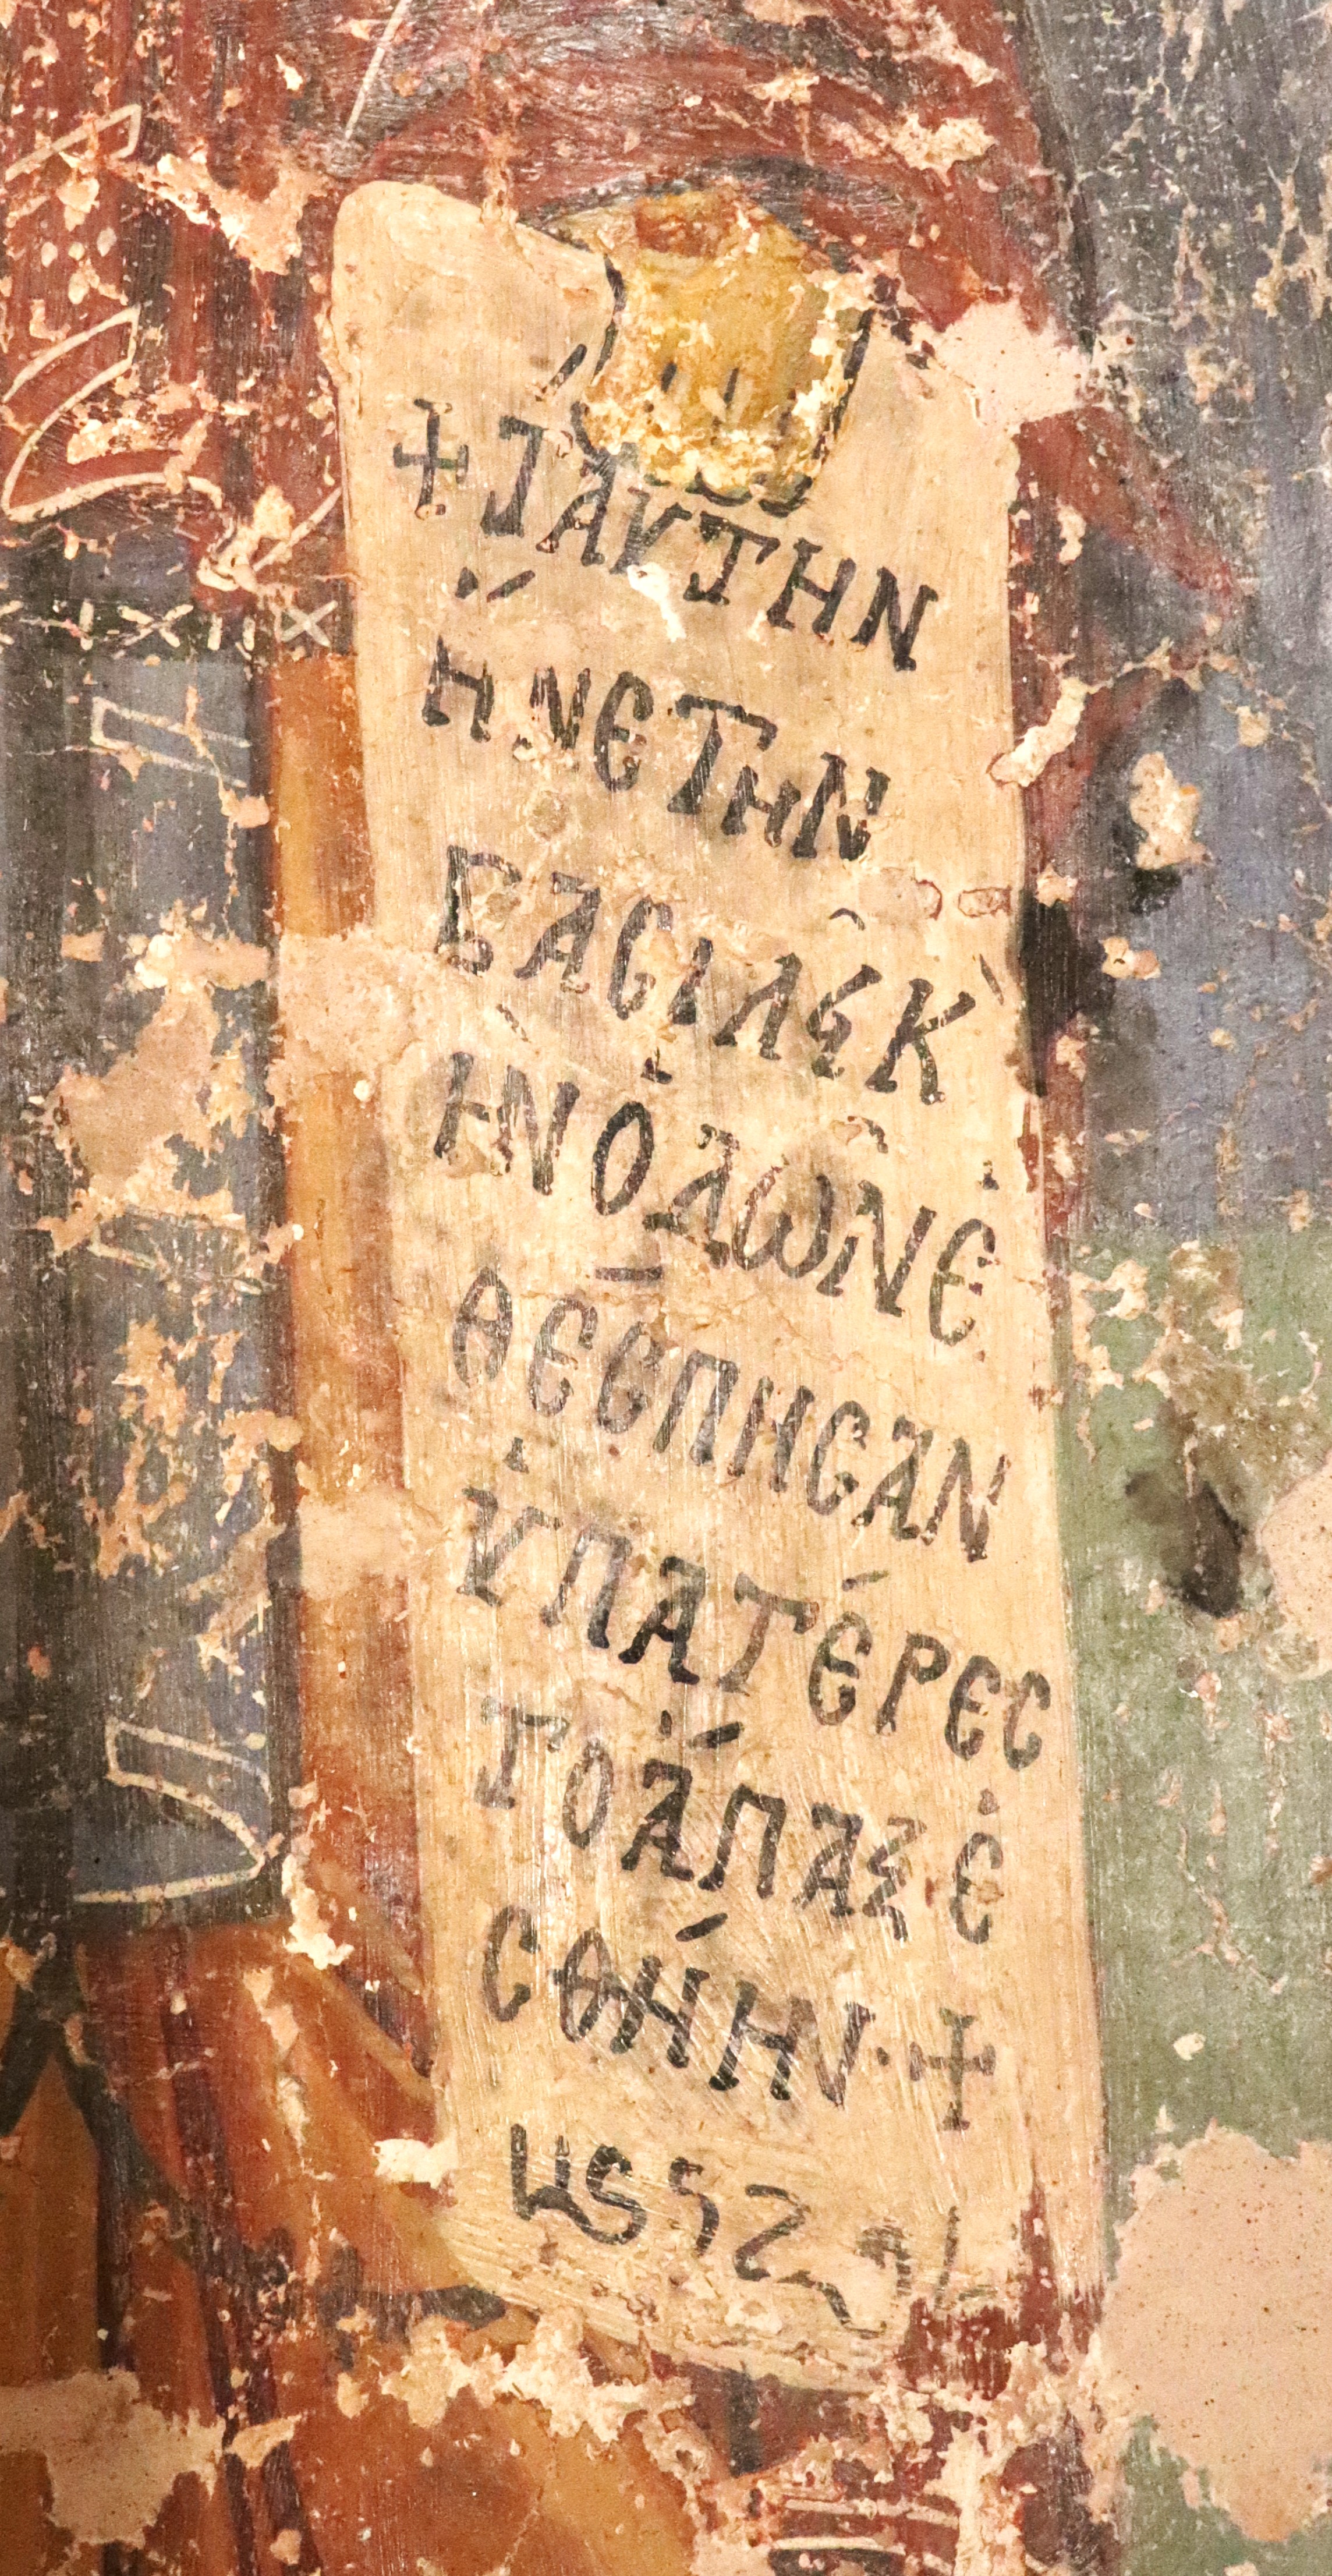 + ΤΑΥΤΗΝ
ΗΝΕΤΗΝ
ΒΑCΙΛΕΚ
ΗΝΟΔΩΝΕ
ΘΕCΠΗCΑΝ
ΥΠΑΤΕΡΕC
ΤΟΑΠΑΞΕ
CΘΗΗΝ· +